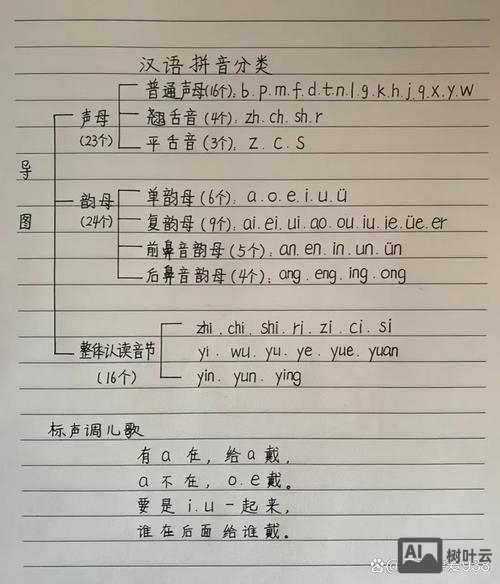 汉语拼音分类
导图
声母
(23个)
普通声母(16个): b.p.m.f.d.t.n.l.g.k.h.j.q.x.y.w
翘舌音(4个): zh.ch.sh.r
平舌音(3个): z.c.s
韵母
(24个)
单韵母(6个): a.o.e.i.u.ü
复韵母(9个): ai.ei.ui.ao.ou.iu.ie.üe.er
前鼻音韵母(5个): an.en.in.un.ün
后鼻音韵母(4个): ang.eng.ing.ong
整体认读音节
(16个)
zhi.chi.shi.ri.zi.ci.si
yi.wu.yu.ye.yue.yuan
yin.yun.ying
标声调儿歌
有a在,给a戴,
a不在,o.e戴。
要是i.u一起来,
谁在后面给谁戴。
AI
树叶云
938